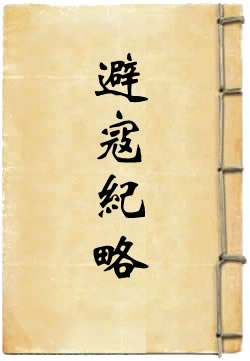 避寇紀略